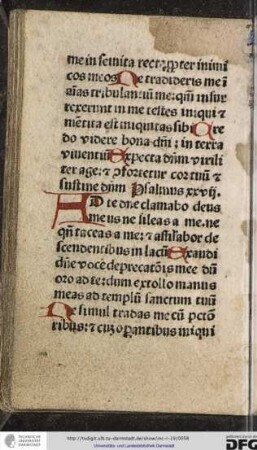 me in semita recta ꝓpter inimi
cos meos Ne tradideris me ĩ
aĩas tribulantiũ me: qm̃ insur
rexerunt in me testes iniqui ⁊
mẽtita est iniquitas sibi Cre
do videre bona dñi: in terra
viventiũ Expecta dñm virili
ter age: ⁊ ꝯfortetur cor tuũ ⁊
sustine dñm Psalmus xxvij.
AD te dñe clamabo deus
meus ne sileas a me: ne
qñ taceas a me: ⁊ assilabor de
scendentibus in lacũ Exaudi
dñe vocẽ deprecatõis mee dũ
oro ad te: dum extollo manus
meas ad templũ sanctum tuũ
Ne simul tradas me cũ pctõ
ribus: ⁊ cũ oꝑantibus iniqui
http://tudigit.ulb.tu-darmstadt.de/show/
Universitäts- und Landesbibliothek Darmstadt
TECHNISCHE UNIVERSITÄT DARMSTADT
DFG